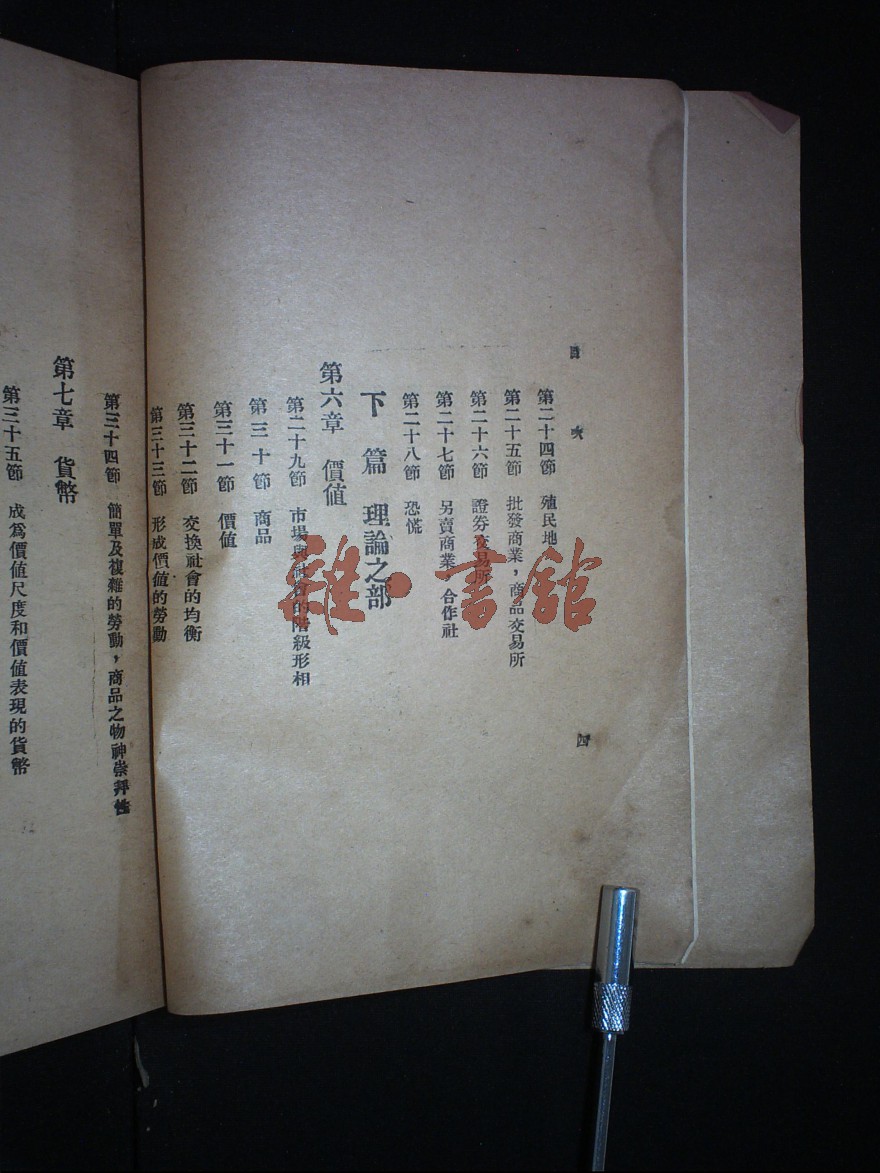 目次
第二十四節 殖民地
第二十五節 批發商業，商品交易所
第二十六節 證券交易所
第二十七節 另賣商業，合作社
第二十八節 恐慌
下篇 理論之部
第六章 價值
第二十九節 市場與社會的階級形相
第三十節 商品
第三十一節 價值
第三十二節 交換社會的均衡
第三十三節 形成價值的勞動
四
第三十四節 簡單及複雜的勞動，商品之物神崇拜性
第七章 貨幣
第三十五節 成爲價值尺度和價值表現的貨幣
雜·書館